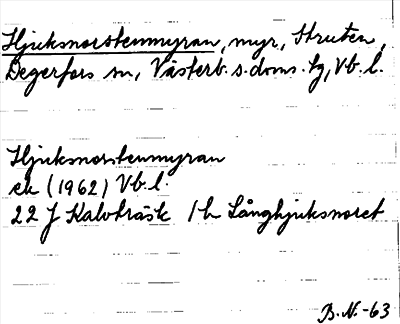 Hjuksnorstenmyran, myr, Struten,
Degerfors sn, Västerb. s. doms. tg, Vb. l.
Hjuksnorstenmyran
ek (1962) Vb. l.
22 J Kalvträsk 1 h Långhjuksnoret
B.N.-63